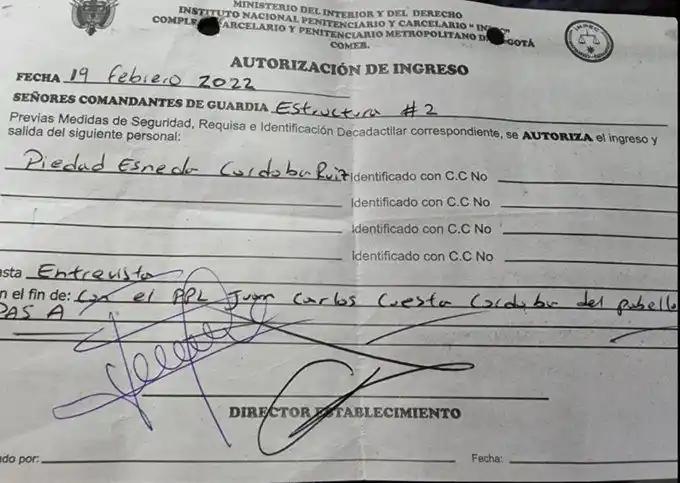 MINISTERIO DEL INTERIOR Y DEL DERECHO
INSTITUTO NACIONAL PENITENCIARIO Y CARCELARIO "IN
COMPLE ARCELARIO Y PENITENCIARIO METROPOLITANO D GOTÁ
COMEB.
AUTORIZACIÓN DE INGRESO
FECHA 19 febrero 2022
SEÑORES COMANDANTES DE GUARDIA Estructura #2
Previas Medidas de Seguridad, Requisa e Identificación Decadactilar correspondiente, se AUTORIZA el ingreso y
salida del siguiente personal:
Piedad Esneda Cordoba Ruiz Identificado con C.C No
Identificado con C.C No
Identificado con C.C No
Identificado con C.C No
asta Entrevista
n el fin de: Con el PPL Juan Carlos Cuesta Cordoba del pabello
PAS A
DIRECTOR ESTABLECIMIENTO
ado por:
Fecha: